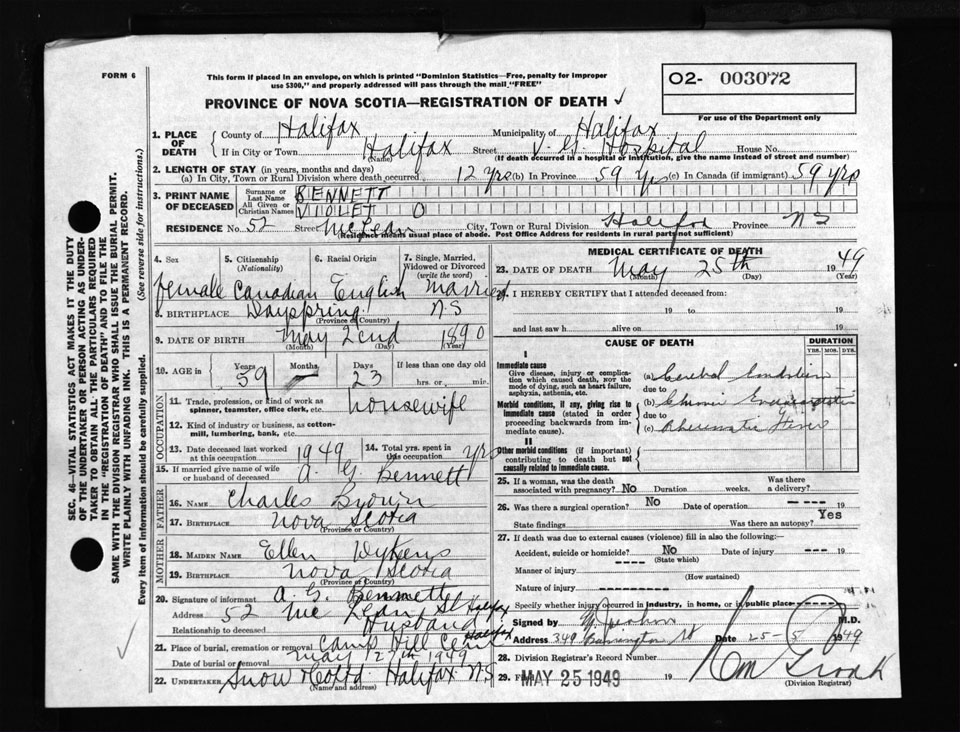 FORM 6
This form if placed in an envelope, on which is printed "Dominion Statistics—Free, penalty for improper
use $300," and properly addressed will pass through the mail "FREE"
O2- 003072
For use of the Department only
PROVINCE OF NOVA SCOTIA—REGISTRATION OF DEATH ✓
SEC. 46—VITAL STATISTICS ACT MAKES IT THE DUTY
OF THE UNDERTAKER OR PERSON ACTING AS UNDER-
TAKER TO OBTAIN ALL THE PARTICULARS REQUIRED
IN THE "REGISTRATION OF DEATH" AND TO FILE THE
SAME WITH THE DIVISION REGISTRAR WHO SHALL ISSUE THE BURIAL PERMIT.
WRITE PLAINLY WITH UNFADING INK. THIS IS A PERMANENT RECORD.
Every item of Information should be carefully supplied. (See reverse side for instructions.)
1. PLACE OF DEATH County of Halifax Municipality of Halifax
If in City or Town Halifax Street V. G. Hospital House No.
(Name) (If death occurred in a hospital or institution, give the name instead of street and number)
2. LENGTH OF STAY (in years, months and days)
(a) In City, Town or Rural Division where death occurred 12 yrs (b) In Province 59 Yrs (c) In Canada (if immigrant) 59 yrs
3. PRINT NAME OF DECEASED Surname or Last Name BENNETT
All Given or Christian Names VIOLET O
RESIDENCE No. 52 Street McLean City, Town or Rural Division Halifax Province NS
(Residence means usual place of abode. Post Office Address for residents in rural parts not sufficient)
4. Sex 5. Citizenship (Nationality) 6. Racial Origin 7. Single, Married, Widowed or Divorced (write the word)
female Canadian English Married
8. BIRTHPLACE Dayspring NS
(Province or Country)
9. DATE OF BIRTH May 2nd 1890
(Month) (Day) (Year)
10. AGE in Years Months Days If less than one day old
59 — 23 hrs. or min.
OCCUPATION
11. Trade, profession, or kind of work as spinner, teamster, office clerk, etc. Housewife
12. Kind of industry or business, as cotton-mill, lumbering, bank, etc.
13. Date deceased last worked at this occupation 1949 14. Total yrs. spent in this occupation yrs
15. If married give name of wife or husband of deceased A. G. Bennett
FATHER
16. NAME Charles
17. BIRTHPLACE Nova Scotia
(Province or Country)
MOTHER
18. MAIDEN NAME Ellen
19. BIRTHPLACE Nova Scotia
(Province or Country)
20. Signature of informant A. G. Bennett
Address 52 McLean St Halifax
Relationship to deceased Husband
21. Place of burial, cremation or removal Camp Hill Cem Halifax
Date of burial or removal May 27th 1949
22. UNDERTAKER Snow & Co Ltd. Halifax NS
(Name and address)
MEDICAL CERTIFICATE OF DEATH
23. DATE OF DEATH May 25th 1949
(Month) (Day) (Year)
24. I HEREBY CERTIFY that I attended deceased from:
19 to 19
and last saw h alive on 19
CAUSE OF DEATH DURATION
YRS. MOS. DYS.
I
Immediate cause
Give disease, injury or complication which caused death, nor the mode of dying, such as heart failure, asphyxia, asthenia, etc.
(a) Cerebral
due to
Morbid conditions, if any, giving rise to immediate cause (stated in order proceeding backwards from immediate cause).
(b) Chronic
due to
(c) Rheumatic
II
Other morbid conditions (if important) contributing to death but not causally related to immediate cause.
25. If a woman, was the death associated with pregnancy? No Duration weeks. Was there a delivery?
26. Was there a surgical operation? No Date of operation — — — 19
State findings Was there an autopsy? Yes
27. If death was due to external causes (violence) fill in also the following:
Accident, suicide or homicide? No Date of injury --- 19
(State which)
Manner of injury
(How sustained)
Nature of injury
Specify whether injury occurred in industry, in home, or in public place
Signed by M.D.
Address 349 Barrington St Date 25-5 1949
28. Division Registrar's Record Number
29. MAY 25 1949 19
(Division Registrar)